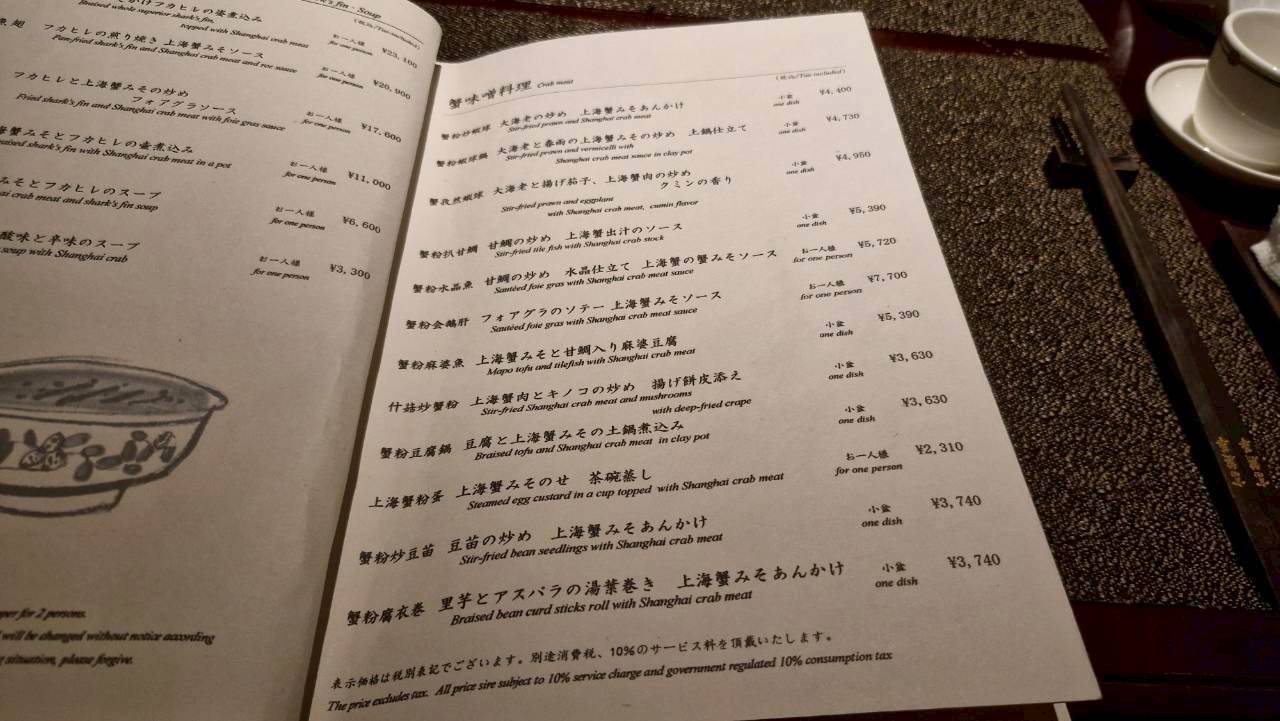 fin · Soup
(税込/Tax-included)
かけフカヒレの姿煮込み
Braised whole superior shark's fin,
topped with Shanghai crab meat
お一人様
for one person
¥23,100
フカヒレの煎り焼き 上海蟹みそソース
Pan-fried shark's fin and Shanghai crab meat and roe sauce
お一人様
for one person
¥20,900
フカヒレと上海蟹みその炒め
フォアグラソース
Fried shark's fin and Shanghai crab meat with foie gras sauce
お一人様
for one person
¥17,600
蟹みそとフカヒレの壷煮込み
shark's fin with Shanghai crab meat in a pot
お一人様
for one person
¥11,000
みそとフカヒレのスープ
crab meat and shark's fin soup
お一人様
for one person
¥6,600
酸味と辛味のスープ
soup with Shanghai crab
お一人様
for one person
¥3,300
for 2 persons.
will be changed without notice according
situation, please forgive.
蟹味噌料理 Crab meat
(税込/Tax-included)
蟹粉炒蝦球 大海老の炒め 上海蟹みそあんかけ 小盆 ¥4,400
Stir-fried prawn and Shanghai crab meat one dish
蟹粉蝦球鍋 大海老と春雨の上海蟹みその炒め 土鍋仕立て 小盆 ¥4,730
Stir-fried prawn and vermicelli with one dish
Shanghai crab meat sauce in clay pot
蟹孜然蝦球 大海老と揚げ茄子、上海蟹肉の炒め 小盆 ¥4,950
クミンの香り one dish
Stir-fried prawn and eggplant
with Shanghai crab meat, cumin flavor
蟹粉扒甘鯛 甘鯛の炒め 上海蟹出汁のソース 小盆 ¥5,390
Stir-fried tile fish with Shanghai crab stock one dish
蟹粉水晶魚 甘鯛の炒め 水晶仕立て 上海蟹の蟹みそソース お一人様 ¥5,720
Sautéed foie gras with Shanghai crab meat sauce for one person
蟹粉会鵝肝 フォアグラのソテー 上海蟹みそソース お一人様 ¥7,700
Sautéed foie gras with Shanghai crab meat sauce for one person
蟹粉麻婆魚 上海蟹みそと甘鯛入り麻婆豆腐 小盆 ¥5,390
Mapo tofu and tilefish with Shanghai crab meat one dish
什菇炒蟹粉 上海蟹肉とキノコの炒め 揚げ餅皮添え 小盆 ¥3,630
Stir-fried Shanghai crab meat and mushrooms one dish
with deep-fried crape
蟹粉豆腐鍋 豆腐と上海蟹みその土鍋煮込み 小盆 ¥3,630
Braised tofu and Shanghai crab meat in clay pot one dish
上海蟹粉蛋 上海蟹みそのせ 茶碗蒸し お一人様 ¥2,310
Steamed egg custard in a cup topped with Shanghai crab meat for one person
蟹粉炒豆苗 豆苗の炒め 上海蟹みそあんかけ 小盆 ¥3,740
Stir-fried bean seedlings with Shanghai crab meat one dish
蟹粉腐衣巻 里芋とアスパラの湯葉巻き 上海蟹みそあんかけ 小盆 ¥3,740
Braised bean curd sticks roll with Shanghai crab meat one dish
表示価格は税別表記でございます。別途消費税、10%のサービス料を頂戴いたします。
The price excludes tax. All price sire subject to 10% service charge and government regulated 10% consumption tax